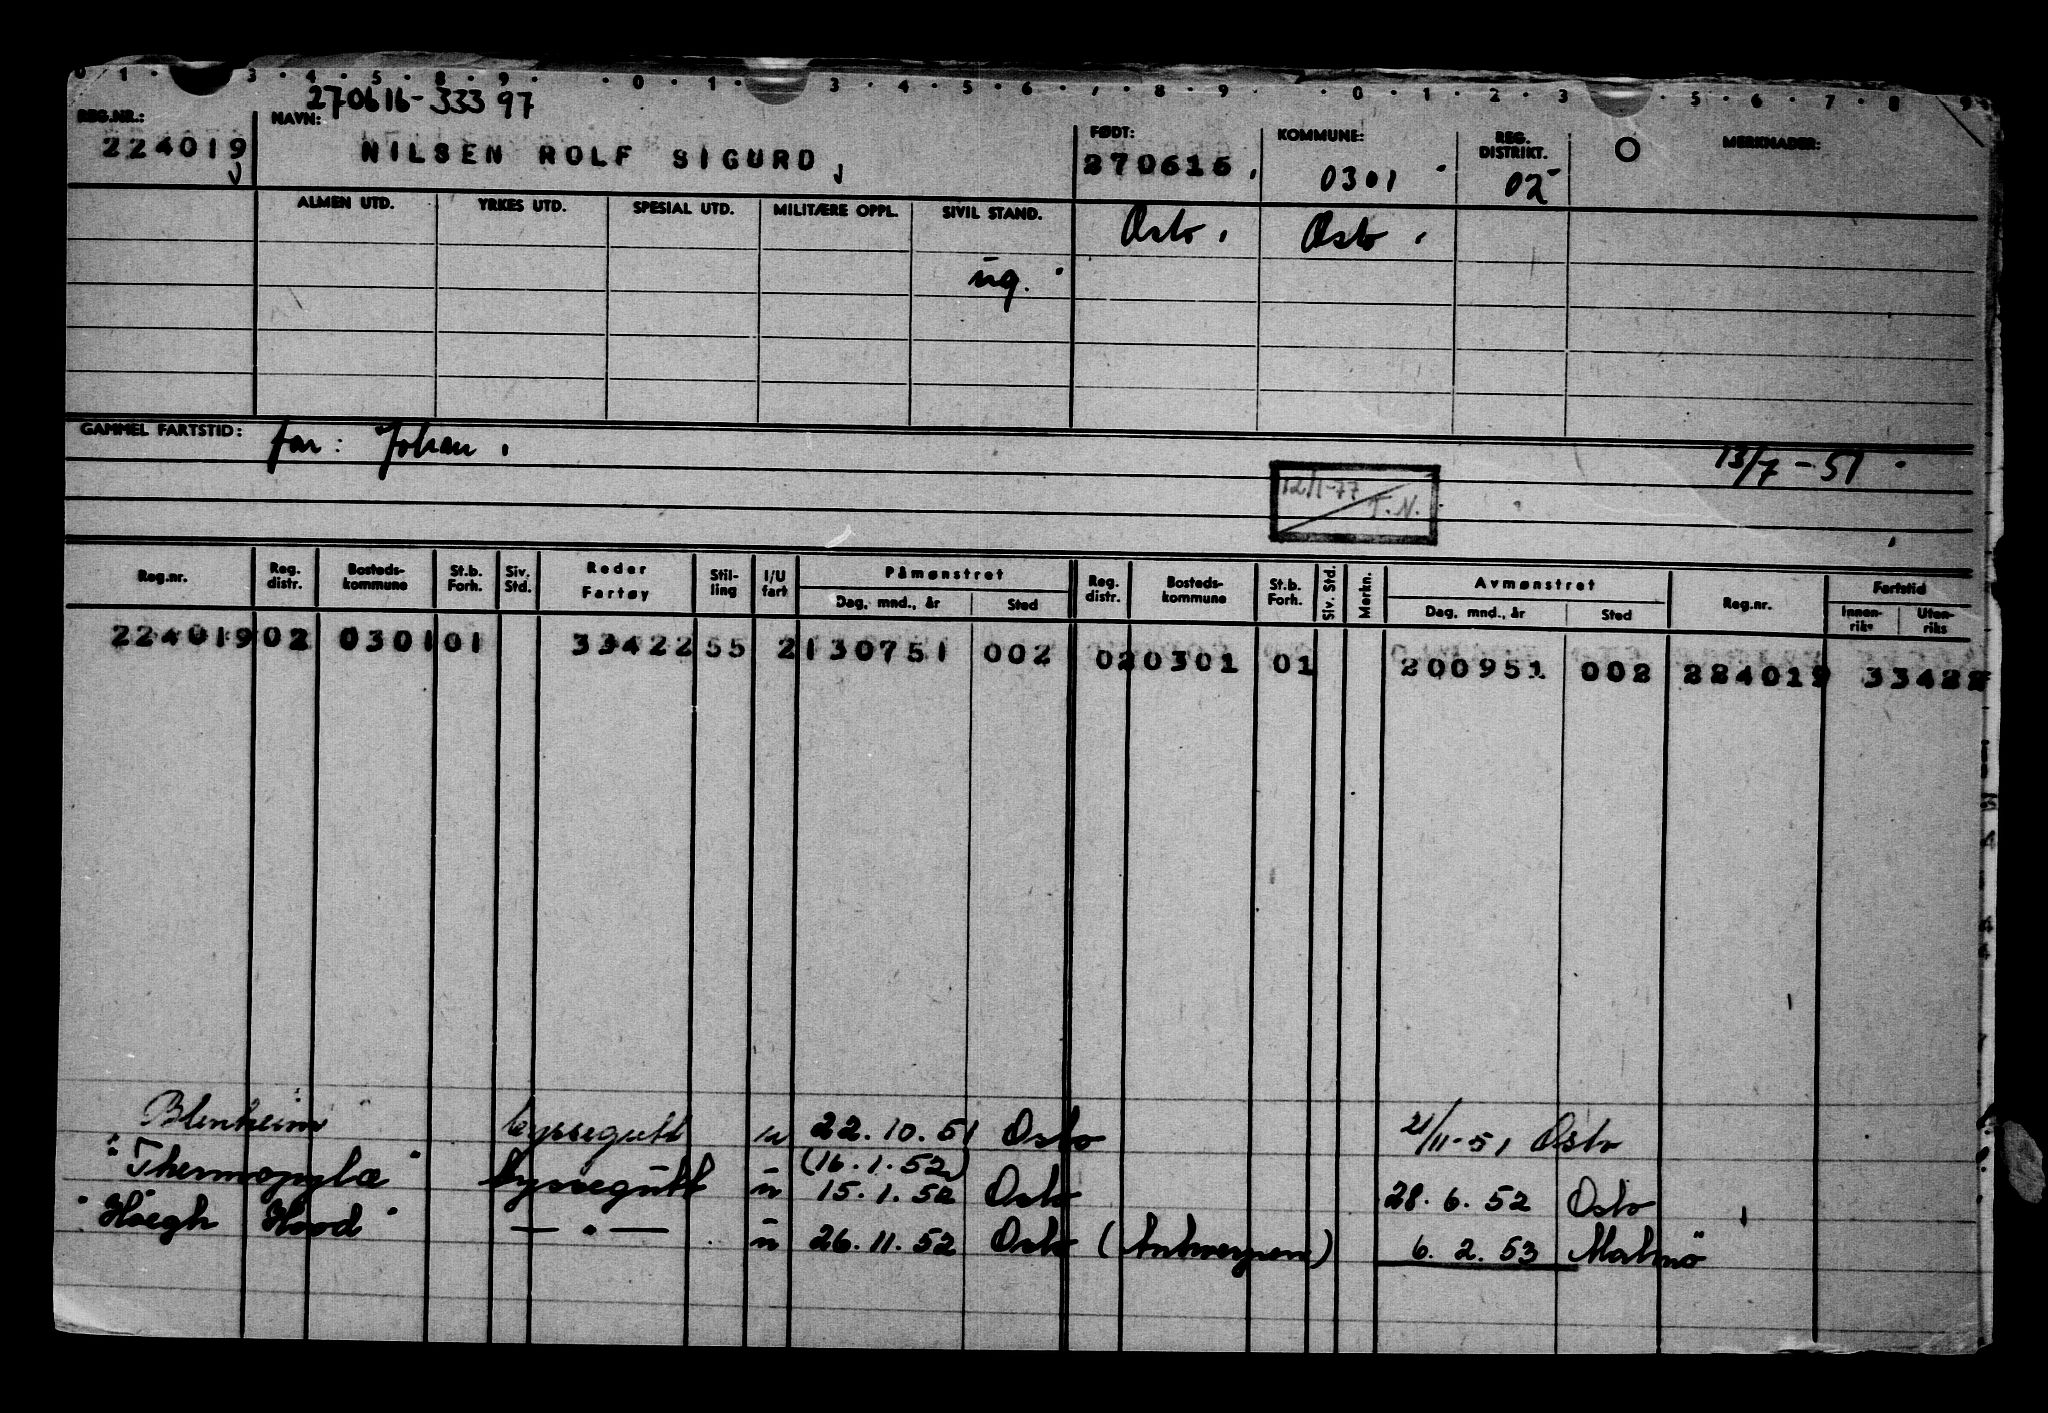 0 1 · 3 · 4 · 5 · 8 · 9 · · 0 · 1 · 3 · 4 · 5 · 6 · 7 · 8 · 9 · · 0 · 1 · 2 · 3 · 5 · 6 · 7 · 8 · 9
270616-333 97
REG.NR.: NAVN: FØDT: KOMMUNE: REG. DISTRIKT. MERKNADER:
224019 NILSEN ROLF SIGURD 270616 0301 02
ALMEN UTD. YRKES UTD. SPESIAL UTD. MILITÆRE OPPL. SIVIL STAND. Oslo Oslo
ug.
GAMMEL FARTSTID: far: Johan. 13/7-51
12/1-77 T.N.
Reg.nr. Reg. distr. Bosteds-kommune St.b. Forh. Siv. Std. Reder Fartøy Stil-ling I/U fart Påmønstret Dag, mnd., år Sted Reg. distr. Bosteds-kommune St.b. Forh. Siv. Std. Merkn. Avmønstret Dag, mnd., år Sted Reg.nr. Fartstid Innen-riks Uten-riks
224019 02 0301 01 33422 55 2 130751 002 02 0301 01 200951 002 224019 33422
Blenheim byssegutt u 22.10.51 Oslo 21/11-51 Oslo
(16.1.52)
"Thermopylæ" byssegutt u 15.1.52 Oslo 28.6.52 Oslo
"Höegh Hood" — " — u 26.11.52 Oslo (Antwerpen) 6.2.53 Malmö